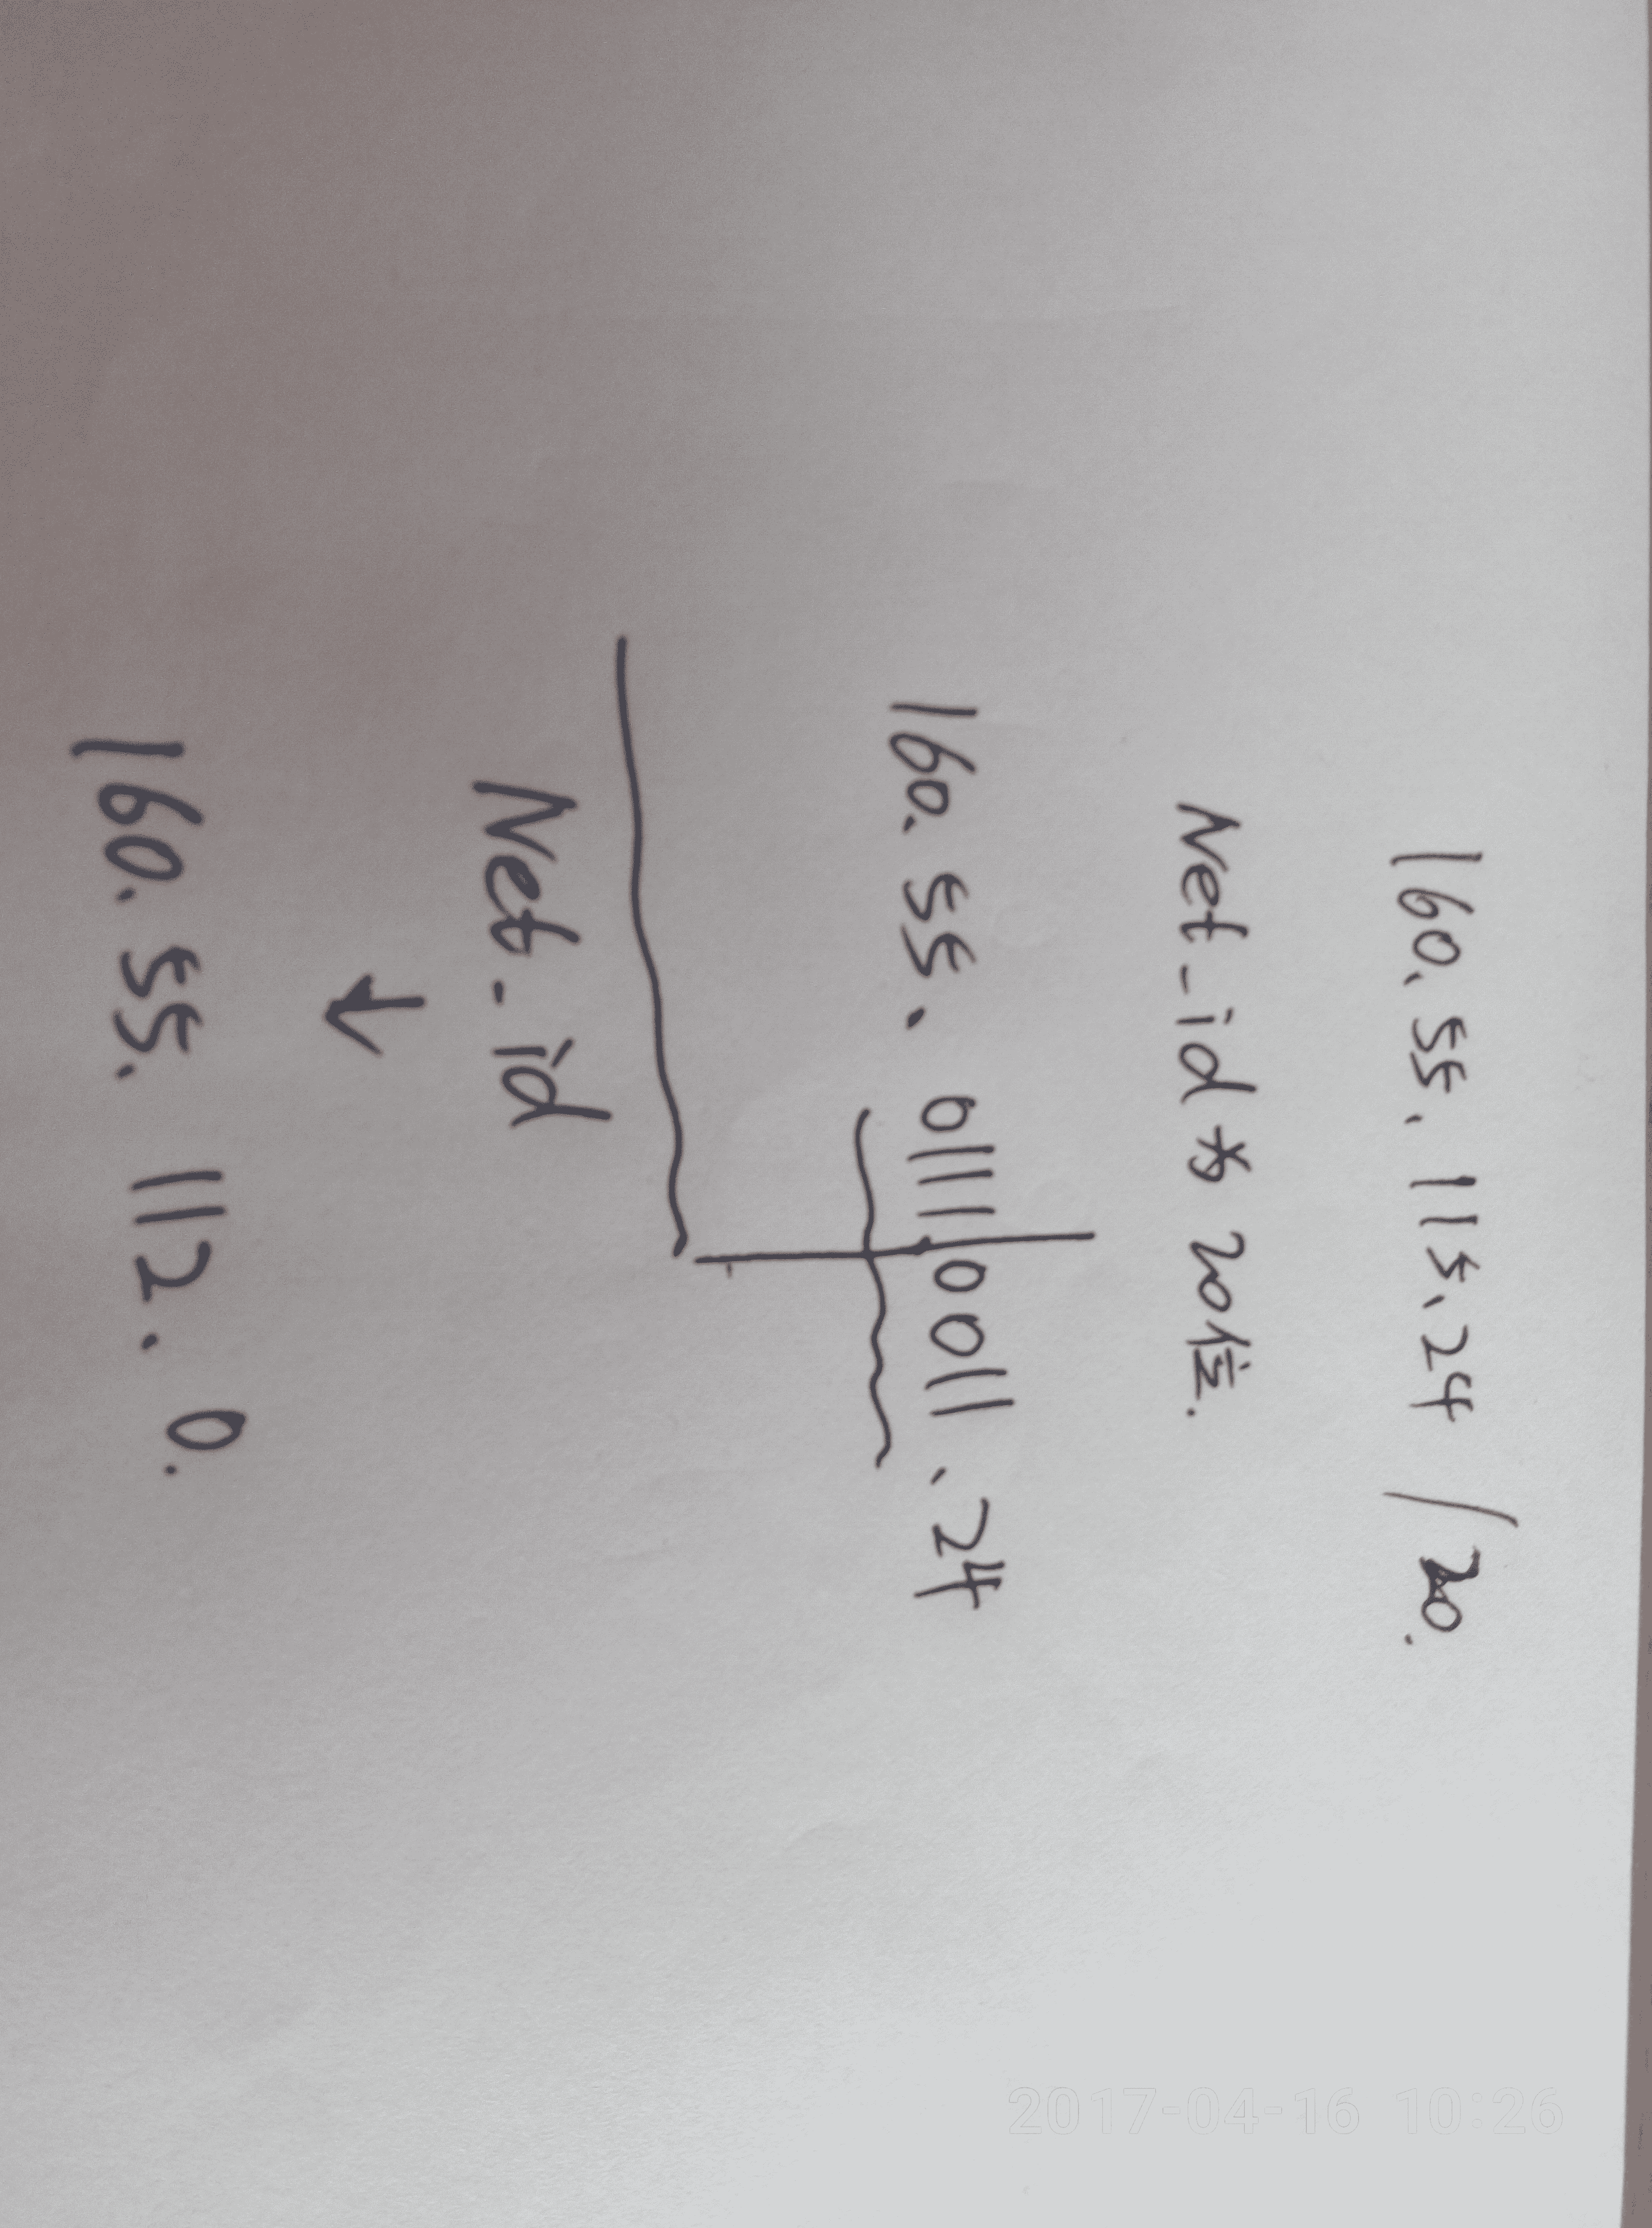 160.55.115.24 / 20.
Net-id为 20位.
160.55.01110011.24
Net-id
↓
160.55.112.0.
2017-04-16 10:26